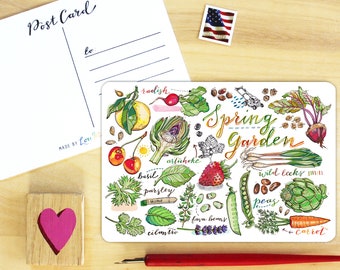 Post Card
to
MADE BY
radish
Spring
Garden
artichoke
basil
parsley
wild leeks
peas
fava beans
cilantro
carrot